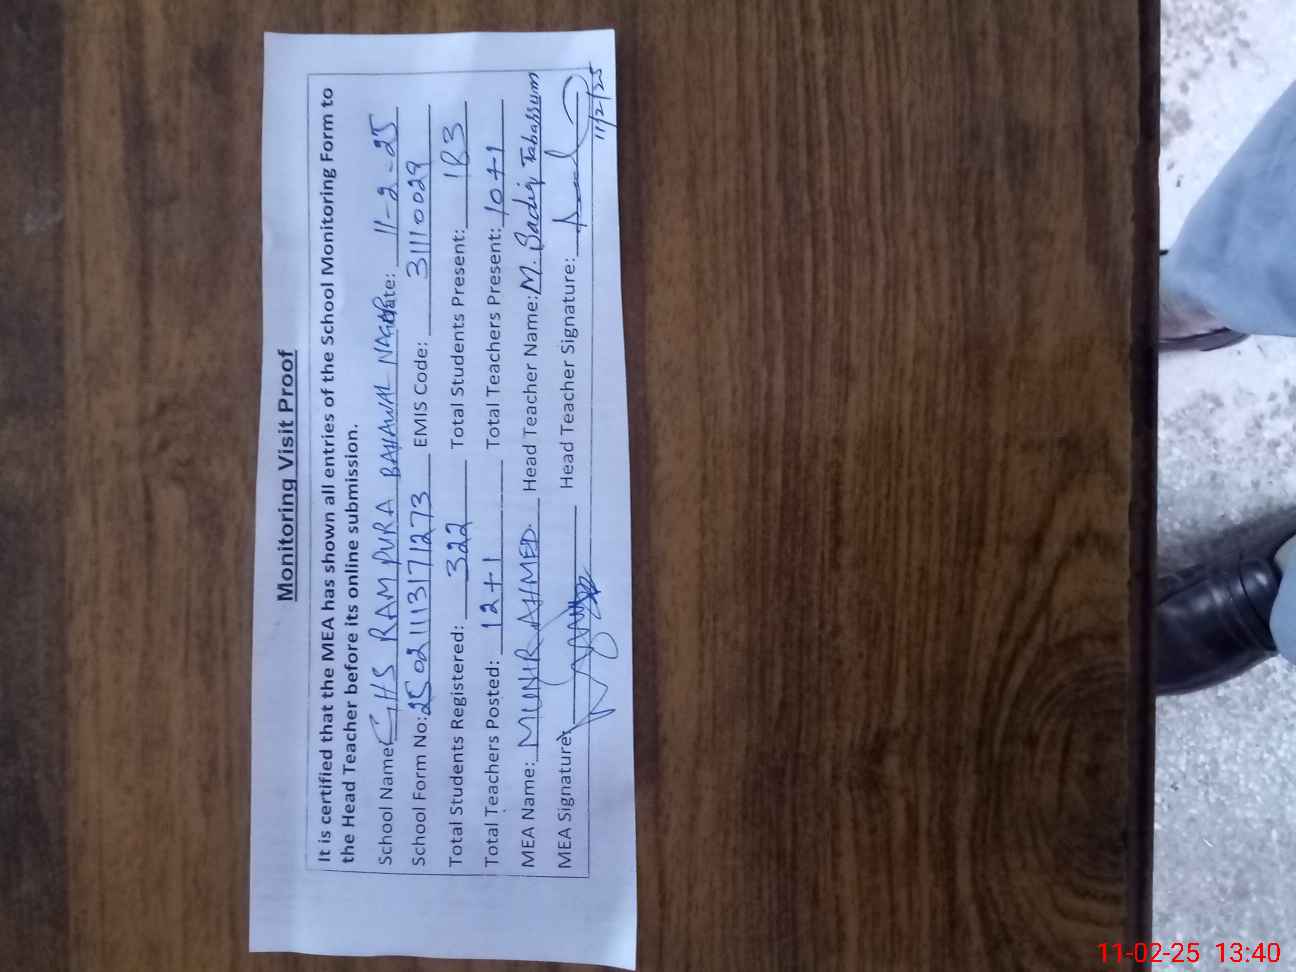 Monitoring Visit Proof
It is certified that the MEA has shown all entries of the School Monitoring Form to
the Head Teacher before its online submission.
School Name GHS RAMPURA BAHAWAL NAGAR Date: 11-2-25
School Form No: 25021113171273 EMIS Code: 31110029
Total Students Registered: 322 Total Students Present: 183
Total Teachers Posted: 12+1 Total Teachers Present: 10+1
MEA Name: MUNIR AHMED Head Teacher Name: M. Sadiq Tabassum
MEA Signature: Head Teacher Signature:
11/2/25
11-02-25 13:40